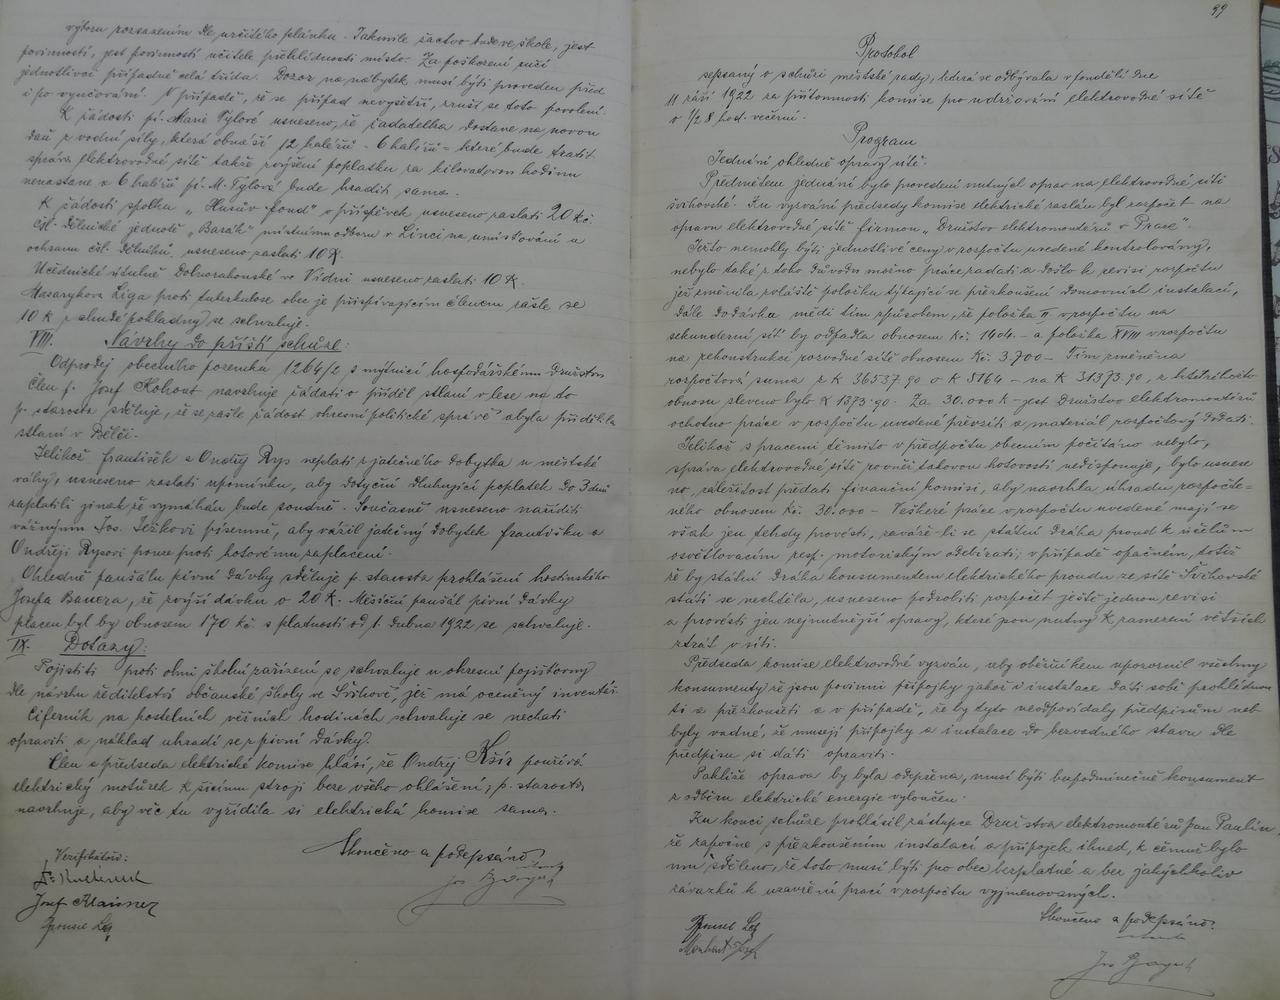 výboru rozsazením dle určitého plánku. Jakmile žactvo bude ve škole, jest
povinností, jest povinností učitele přihlédnouti místo. Za poškození ručí
jednotlivci případně celá třída. Dozor na nábytek musí býti proveden před
i po vyučování. V případě, že se případ nevyšetří, zruší se toto povolení.
K žádosti pí. Marie Týlové usneseno, že žadatelka dostane na novou
daň z vodní síly, která obnáší 12 haléřů - 6 haléřů - které bude tratit
správa elektrovodné sítě takže zvýšení poplatku za kilovatovou hodinu
nenastane a 6 haléřů pí. M. Týlová bude hraditi sama.
K žádosti spolku „Husův fond" o příspěvek usneseno zaslati 20 Kč
čsl. dělnické jednotě „Barák" místnímu odboru v Linci na umísťování a
ochranu čsl. dělníků, usneseno zaslati 10 K.
Učednické útulně Dolnorakouské ve Vídni usneseno zaslati 10 K.
Masarykova Liga proti tuberkulose obec je přispívajícím členem zašle se
10 K z chudé pokladny se schvaluje.
VIII. Návrhy do příští schůze:
Odprodej obecního pozemku 1264/2 s myslnicí hospodářskému Družstvu
Člen p. Josef Kohout navrhuje žádati o příděl stlaní v lese na to
p. starosta sděluje, že se zašle žádost okresní politické správě abyla přidělila
stlaní v Bělči.
Jelikož František a Ondřej Rys neplatí z jatečného dobytka u městské
váhy, usneseno zaslati upomínku, aby dotyční dlužnící poplatek do 3 dnů
zaplatili jinak že vymáhán bude soudně. Současně usneseno naříditi
vážnýmu Jos. Ježkovi písemně, aby vážil jatečný dobytek Františku a
Ondřeji Rysovi pouze proti hotovému zaplacení.
Ohledně paušálu pivní dávky sděluje p. starosta prohlášení hostinského
Josefa Bauera, že zvýší dávku o 20 K. Měsíční paušál pivní dávky
placen byl by obnosem 170 Kč s platností od 1. dubna 1922 se schvaluje.
IX. Dotazy:
Pojistiti proti ohni školní zařízení se schvaluje u okresní pojišťovny
dle návrhu ředitelství občanské školy ve Švihově, jež má oceněný inventář.
Ciferník na kostelních věžních hodinách schvaluje se nechati
opraviti a náklad uhradí se z pivní dávky.
Člen a předseda elektrické komise hlásí, že Ondrej Kšír používá
elektrický motůrek k šicímu stroji beze všeho ohlášení; p. starosta
navrhuje, aby věc tu vyřídila si elektrická komise sama.
Skončeno a podepsáno
Verifikátoři:
Josef Klaisner
99
Protokol
sepsaný o schůzi městské rady, která se odbývala v pondělí dne
11 září 1922 za přítomnosti komise pro udržování elektrovodné sítě
o 1/2 8 hod. večerní.
Program
Jednání ohledně opravy sítě.
Předmětem jednání bylo provedení nutných oprav na elektrovodné síti
švihovské. Ku vyzvání předsedy komise elektrické zaslán byl rozpočet na
opravu elektrovodné sítě firmou „Družstvo elektromontérů v Praze".
Ježto nemohly býti jednotlivé ceny v rozpočtu uvedené kontrolovány,
nebylo také z toho důvodu možno práce zadati a došlo k revisi rozpočtu
jež změnila zvláště položku týkající se přezkoušení domovních instalací,
dále dodávku mědi tím způsobem, že položka II v rozpočtu na
sekunderní síť by odpadla obnosem Kč. 1404.- a položka XVIII v rozpočtu
na rekonstrukci rozvodné sítě obnosem Kč. 3.700 - Tím změněna
rozpočtová suma z K 36537.90 o K 5164 - na K 31373.90, z kteréhožto
obnosu sleveno bylo K 1373.90. Za 30.000 K - jest Družstvo elektromontérů
ochotno práce v rozpočtu uvedené převzíti a materiál rozpočtový dodati.
Jelikož s pracemi těmito v předpočtu obecním počítáno nebylo,
správa elektrovodné sítě rovněž takovou hotovostí nedisponuje, bylo usnese
no, záležitost předati finanční komisi, aby navrhla úhradu rozpočte-
ného obnosem Kč. 30.000 - Veškeré práce v rozpočtu uvedené mají se
však jen tehdy provésti, zaváže-li se státní dráha proud k účelům
osvětlovacím resp. motorickým odebírati; v případě opačném, totiž
že by státní dráha konsumentem elektrického proudu ze sítě Švihovské
státi se nechtěla, usneseno podrobiti rozpočet ještě jednou revisi
a provésti jen nejnutnější opravy, které jsou nutny k zamezení větších
ztrát v síti.
Předseda komise elektrovodné vyzván, aby oběžníkem upozornil všechny
konsumenty, že jsou povinni přípojky jakož i instalace dáti sobě prohlédnou
ti a přezkoušeti a v případě, že by tyto neodpovídaly předpisům neb
byly vadné, že musejí přípojky a instalace do bezvadného stavu dle
předpisu si dáti opraviti.
Pakliže oprava by byla odepřena, musí býti bezpodmínečně konsument
z odběru elektrické energie vyloučen.
Ku konci schůze prohlásil zástupce Družstva elektromontérů pan Paulin,
že započne s přezkoušením instalací a přípojek ihned, k čemuž bylo
mu sděleno, že toto musí býti pro obec bezplatné a bez jakýchkoliv
závazků k uzavření prací v rozpočtu vyjmenovaných.
Skončeno a podepsáno.